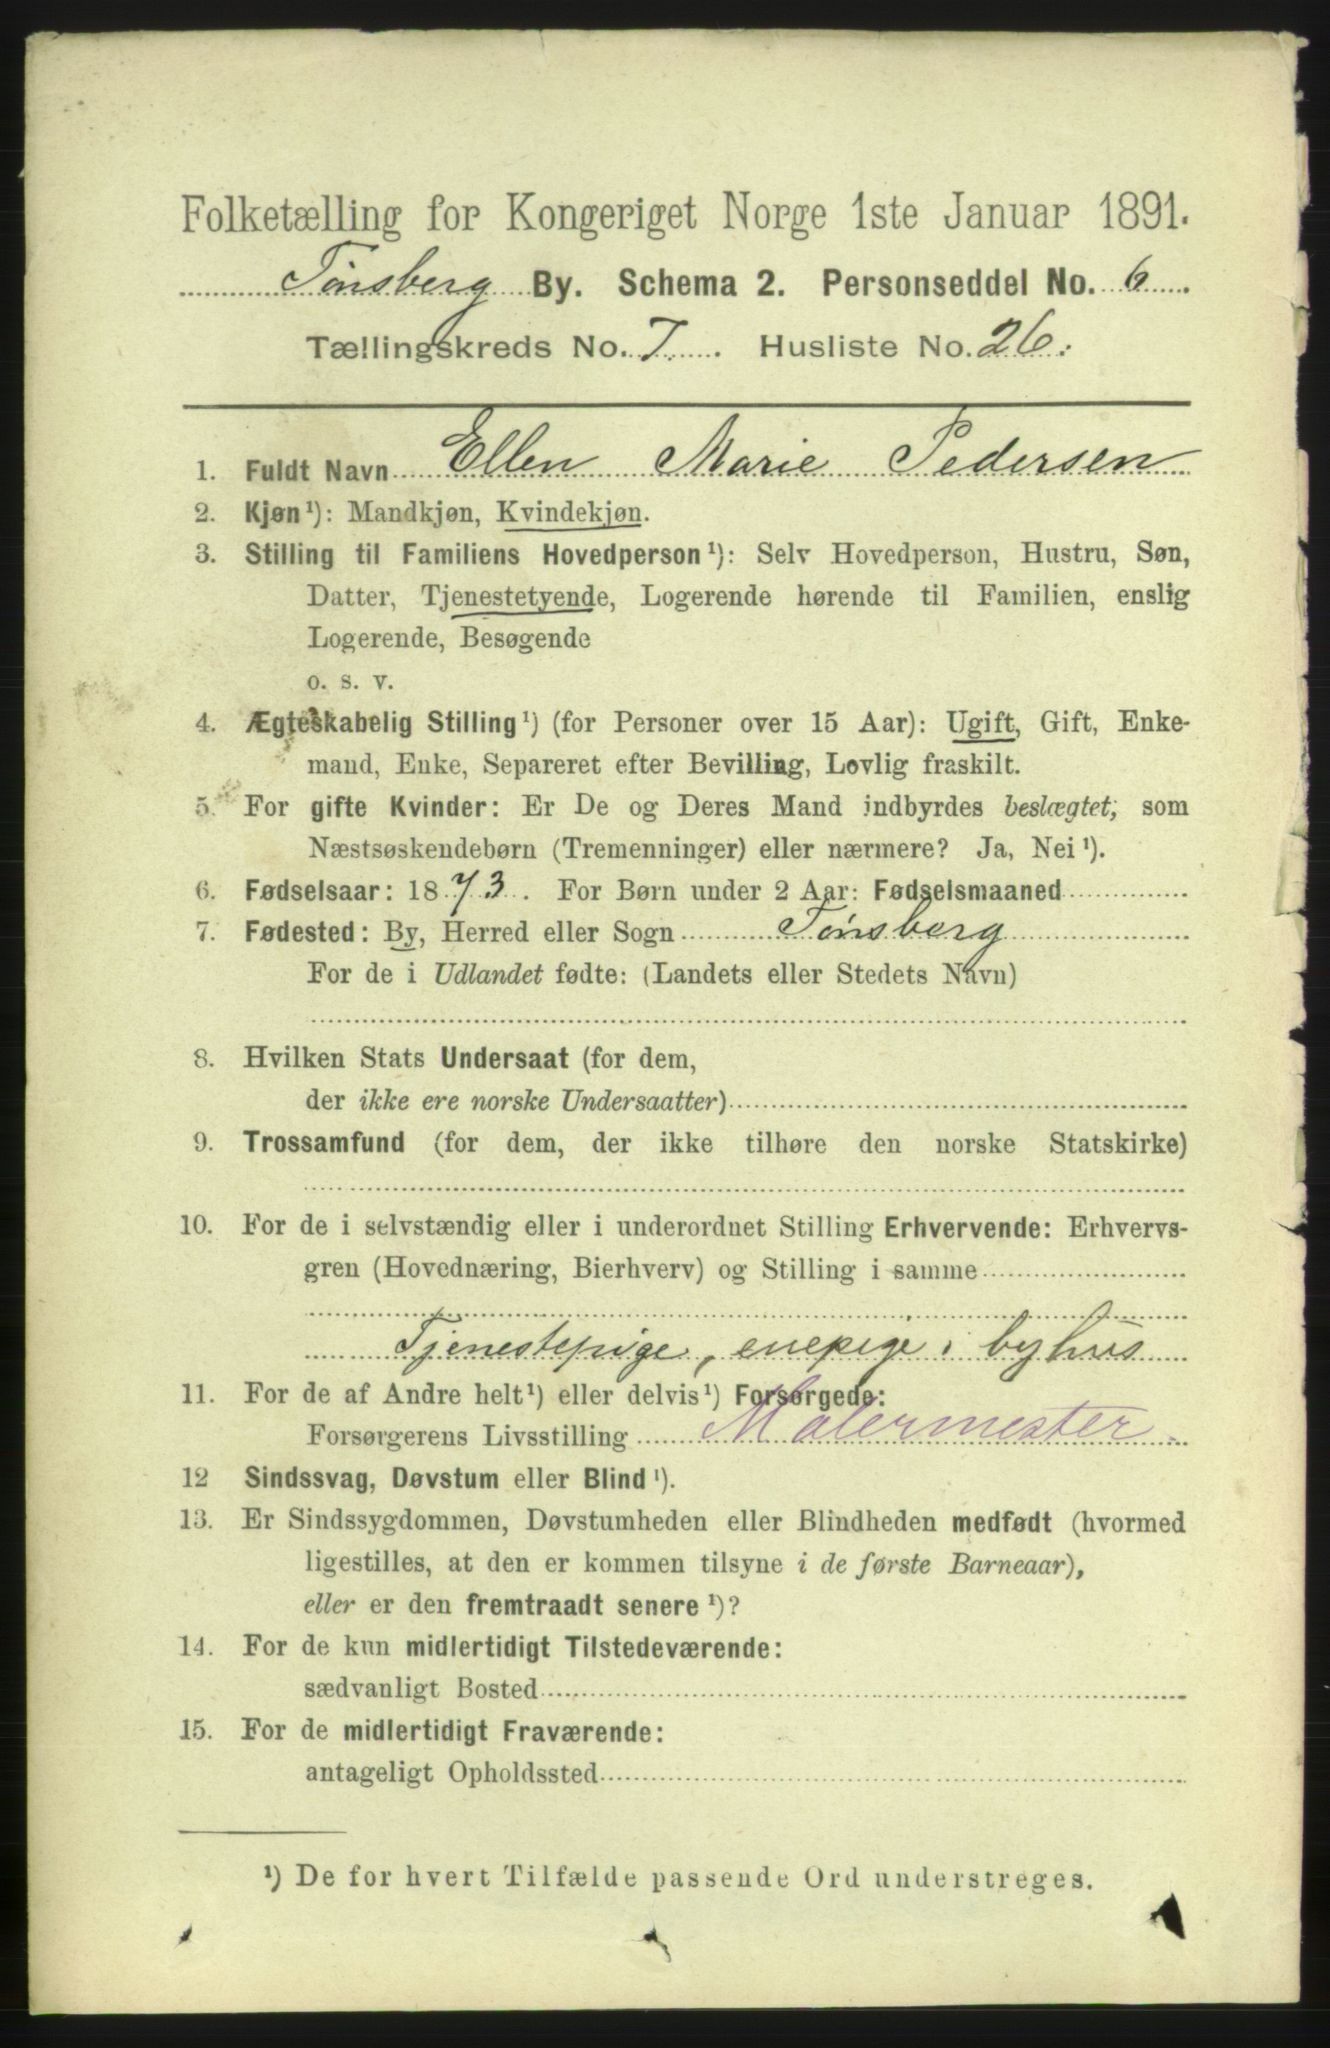 Folketælling for Kongeriget Norge 1ste Januar 1891.
Tønsberg By. Schema 2. Personseddel No. 6
Tællingskreds No. 7. Husliste No. 26.
1. Fuldt Navn Ellen Marie Pedersen
2. Kjøn¹): Mandkjøn, Kvindekjøn.
3. Stilling til Familiens Hovedperson¹): Selv Hovedperson, Hustru, Søn,
Datter, Tjenestetyende, Logerende hørende til Familien, enslig
Logerende, Besøgende
o. s. v.
4. Ægteskabelig Stilling¹) (for Personer over 15 Aar): Ugift, Gift, Enke-
mand, Enke, Separeret efter Bevilling, Lovlig fraskilt.
5. For gifte Kvinder: Er De og Deres Mand indbyrdes beslægtet, som
Næstsøskendebørn (Tremenninger) eller nærmere? Ja, Nei¹).
6. Fødselsaar: 1873. For Børn under 2 Aar: Fødselsmaaned
7. Fødested: By, Herred eller Sogn Tønsberg
For de i Udlandet fødte: (Landets eller Stedets Navn)
8. Hvilken Stats Undersaat (for dem,
der ikke ere norske Undersaatter)
9. Trossamfund (for dem, der ikke tilhøre den norske Statskirke)
10. For de i selvstændig eller i underordnet Stilling Erhvervende: Erhvervs-
gren (Hovednæring, Bierhverv) og Stilling i samme
Tjenestepige, enepige i byhus
11. For de af Andre helt¹) eller delvis¹) Forsørgede:
Forsørgerens Livsstilling Malermester
12 Sindssvag, Døvstum eller Blind¹).
13. Er Sindssygdommen, Døvstumheden eller Blindheden medfødt (hvormed
ligestilles, at den er kommen tilsyne i de første Barneaar),
eller er den fremtraadt senere¹)?
14. For de kun midlertidigt Tilstedeværende:
sædvanligt Bosted
15. For de midlertidigt Fraværende:
antageligt Opholdssted
¹) De for hvert Tilfælde passende Ord understreges.